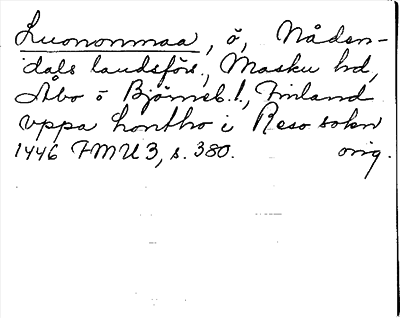 Luononmaa, ö, Nåden-
dals landsförs., Masku hd,
Åbo o Björneb. l., Finland
vppa lontho i Reso sokn
1446 FMU 3, s. 380. orig.